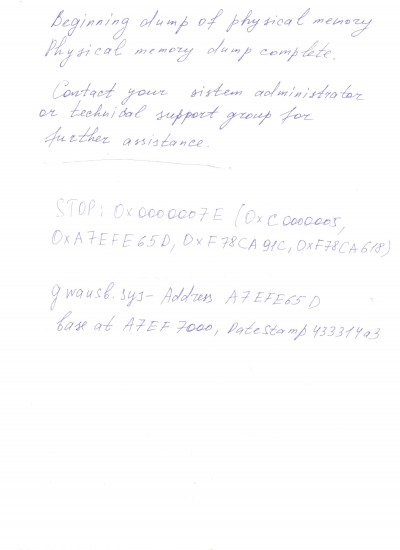 Beginning dump of physical memory
Physical memory dump complete.
Contact your sistem administrator
or technical support group for
further assistance.
STOP: 0x0000007E (0xC0000005,
0xA7EFE65D, 0xF78CA91C, 0xF78CA618)
gwausb.sys - Address A7EFE65D
base at A7EF7000, DateStamp 433314a3